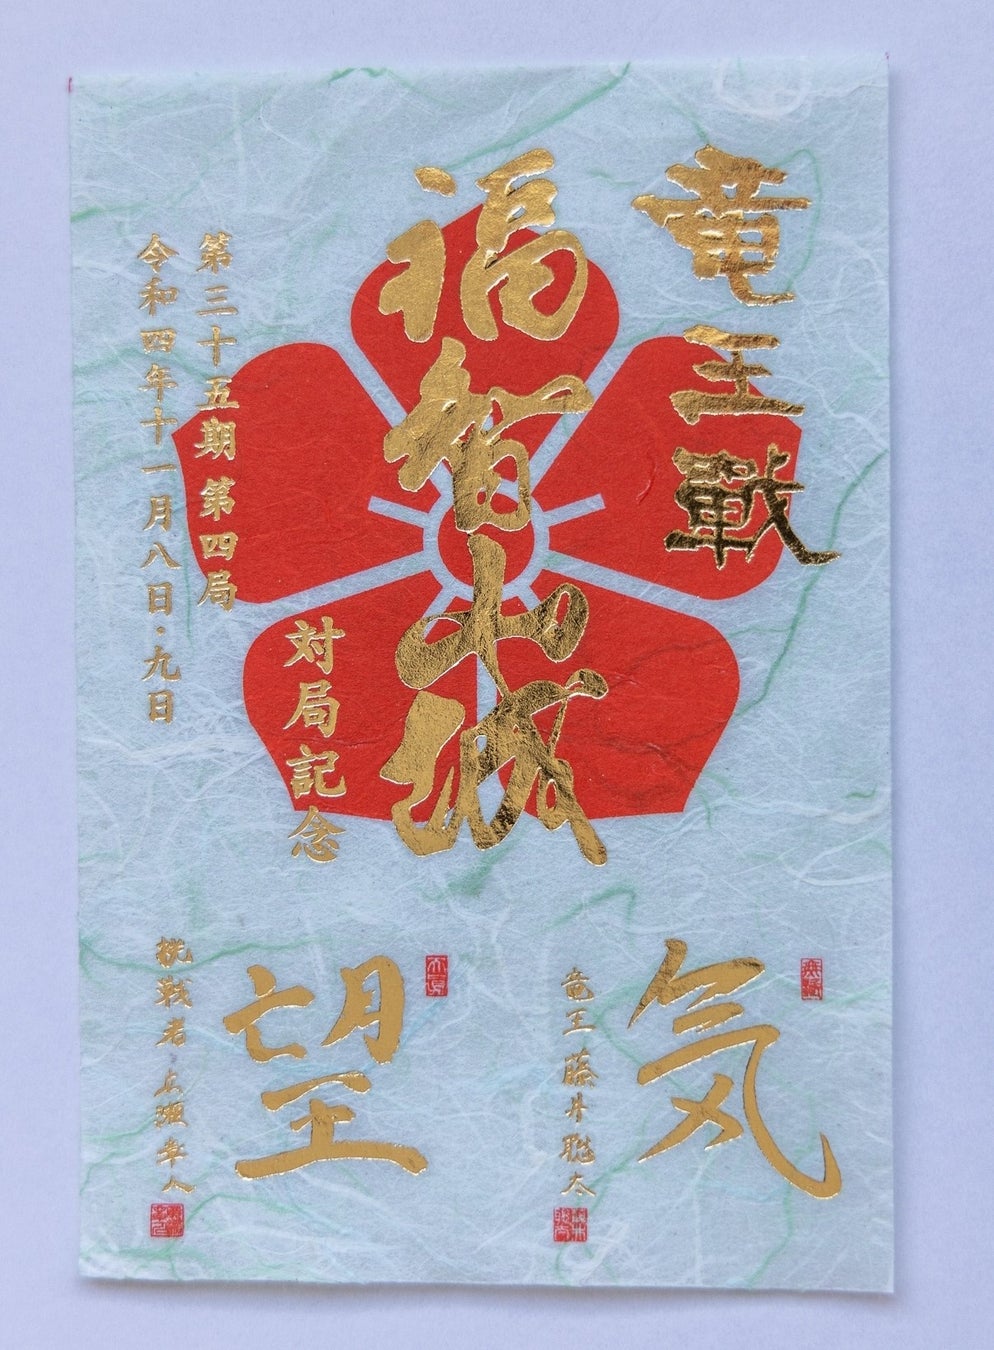 竜王戰
福智山城
対局記念
第三十五期第四局
令和四年十一月八日・九日
気
竜王 藤井聡太
望
挑戦者 広瀬章人